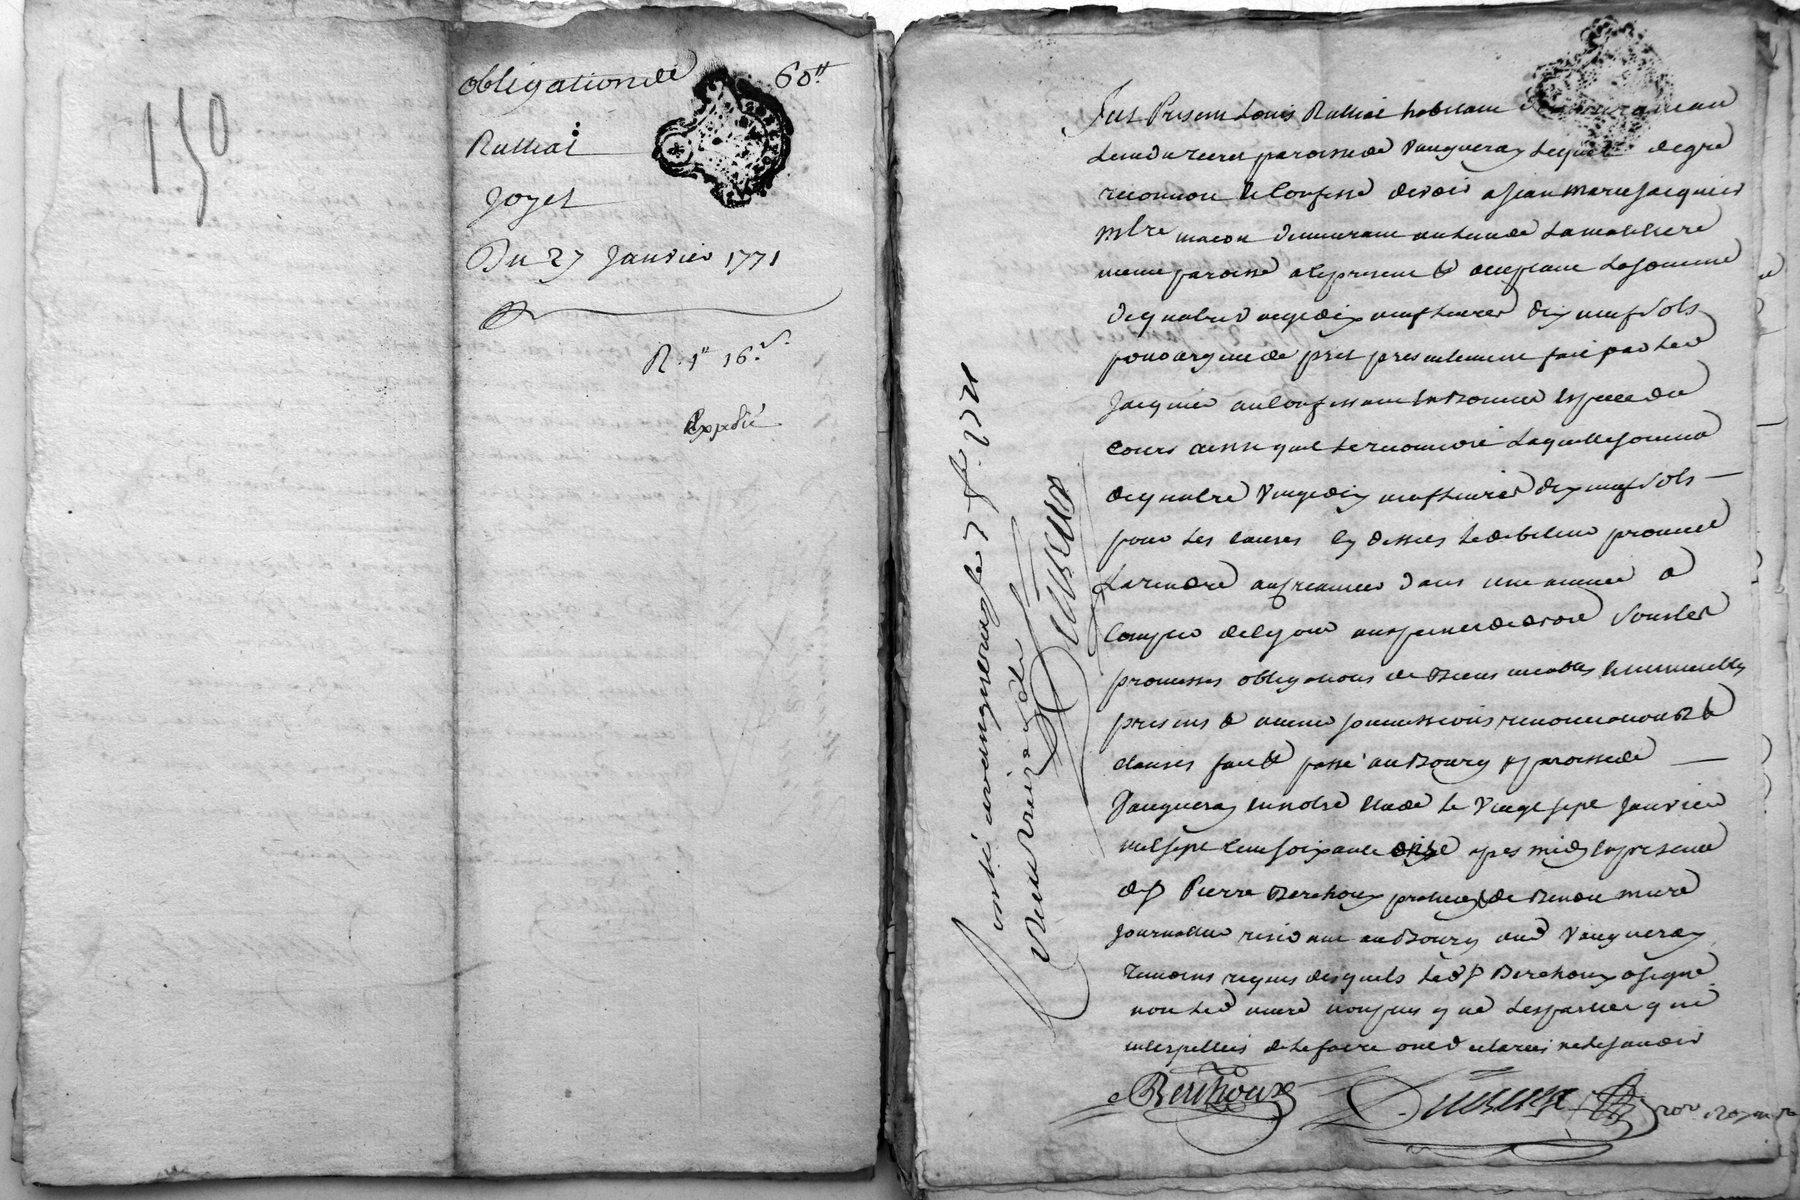 150
obligation de 60tt
Rulliat
Joyet
Du 27 Janvier 1771
R. 1tt 16s
Expedié
Fut Present Louis Rulliat habitant
paroisse de Vaugneray Lequel de gré
reconnoit & Confesse devoir a Jean Marie Jacquier
mtre macon demeurant au lieu de La
meme paroisse a ce present & acceptant La somme
de quatre vingt dix neuf Livres dix neuf sols
pour argent de pret presentement fait par Led
Jacquier au Confessant En Bonnes Especes du
Cours ainsi quil Le reconnoit Laquelle somme
de quatre vingt dix neuf Livres dix neuf sols
pour Les Causes Cy dessus Le debiteur promet
La rendre au creancier dans une année a
Compter de ce jour aux peines de droit sous les
promesses obligations de Biens meubles & immeubles
presens & avenir soumissions renonciations &
clauses fait & passé au Bourg & paroisse de
Vaugneray en notre Etude Le vingt sept Janvier
mil sept Cent soixante onze apres midy En presence
de s Pierre Berchoux praticien & de Benoit mure
Journallier residant au Bourg dud Vaugneray
temoins requis desquels Led s Berchoux a signé
non Led mure non plus que Les parties qui
interpellés de Le faire ont declarés ne Le savoir
Berchoux
Conlé a vaugneray le 7 fe 1771